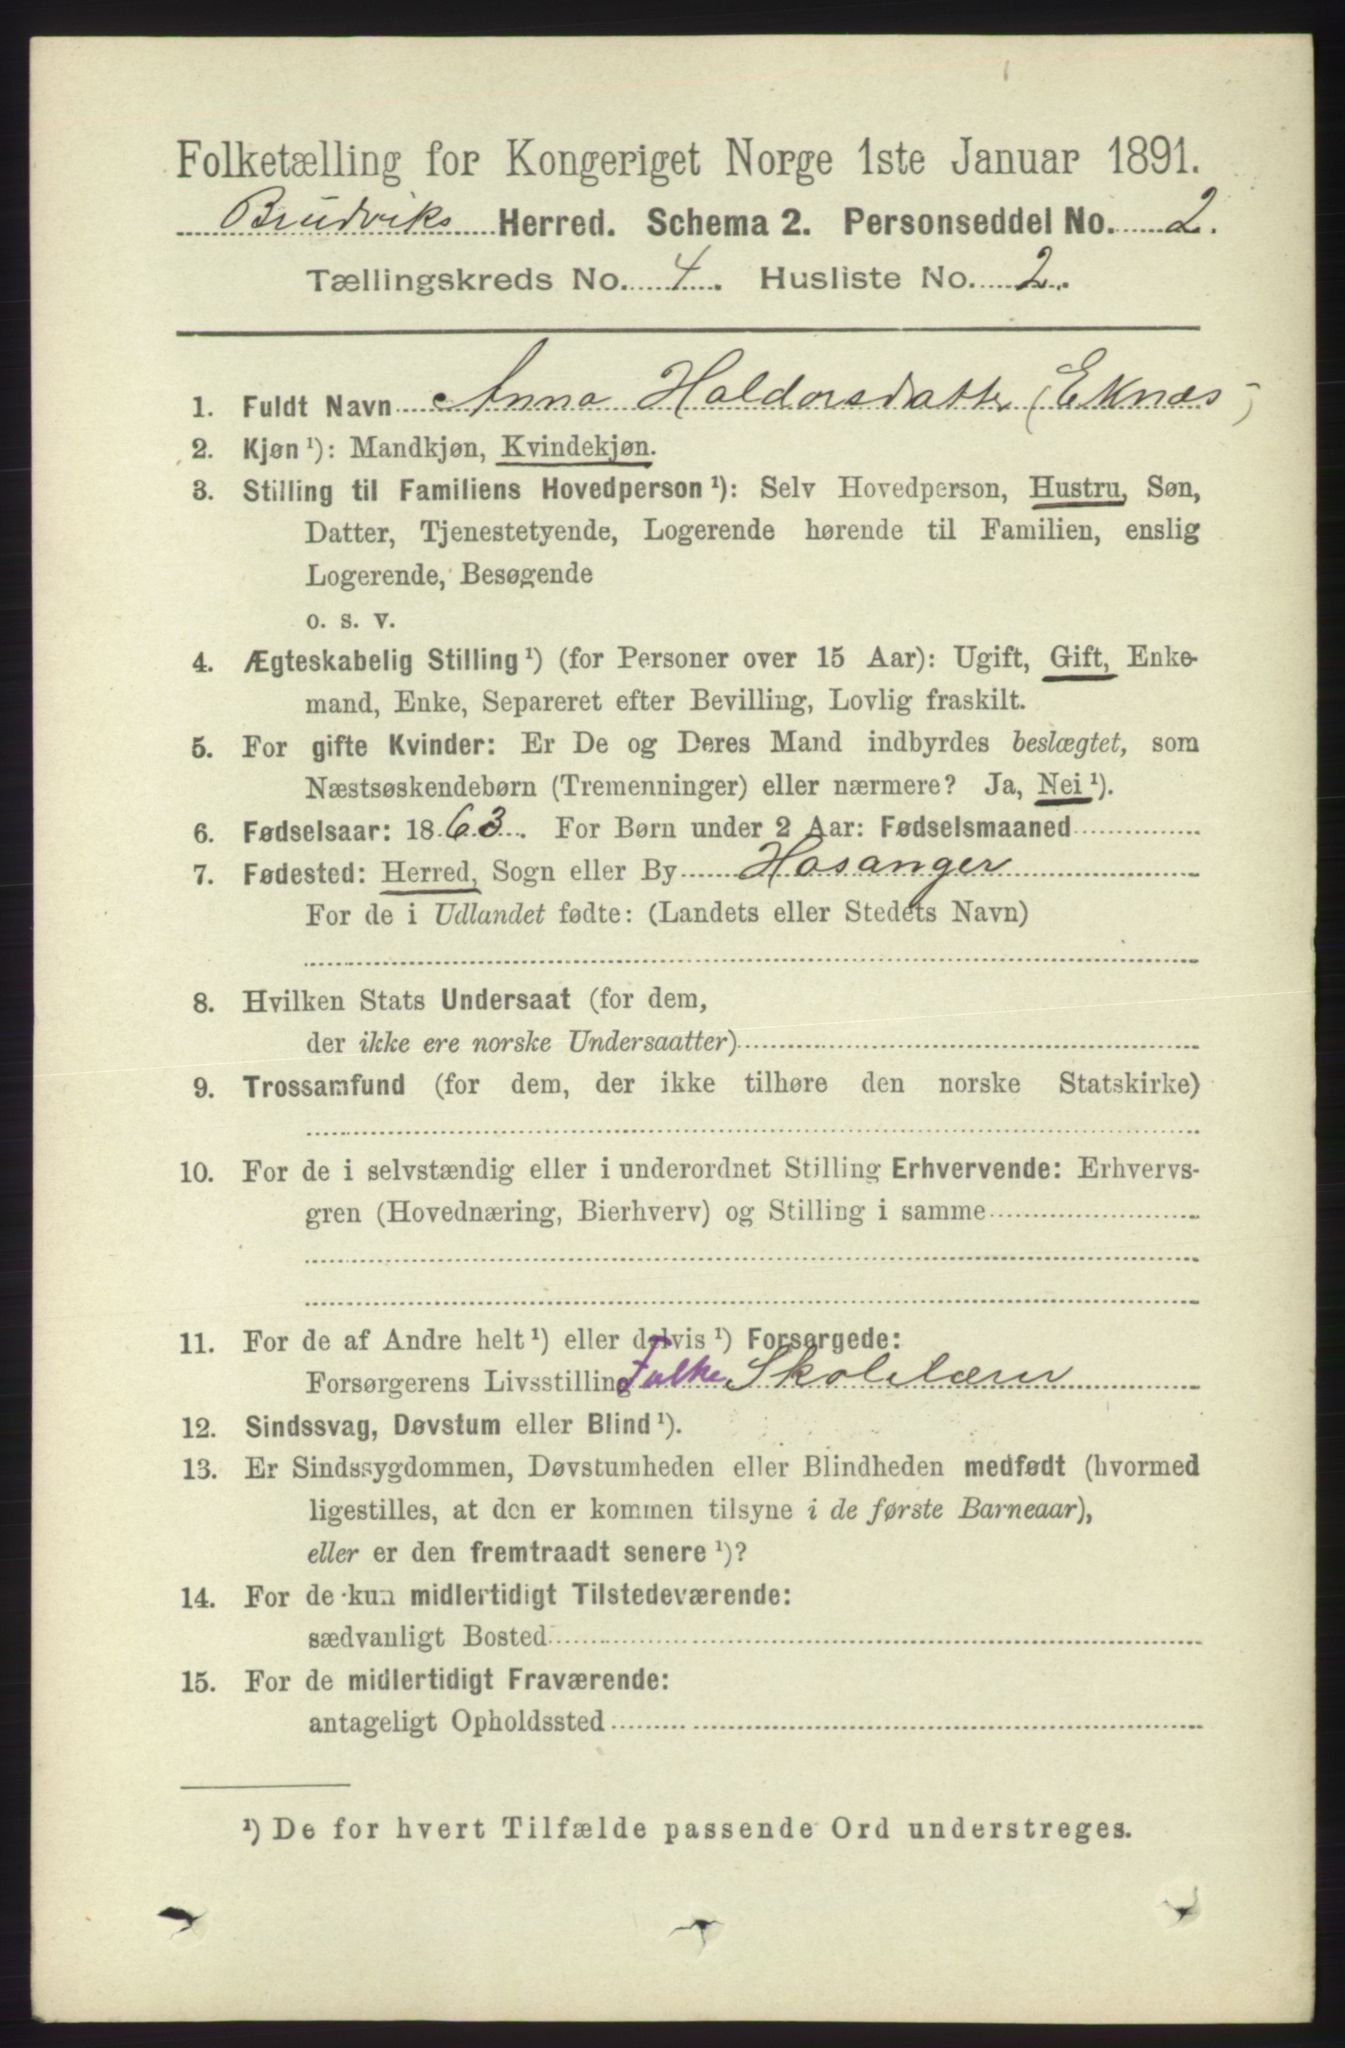 Folketælling for Kongeriget Norge 1ste Januar 1891.
Brudviks Herred. Schema 2. Personseddel No. 2.
Tællingskreds No. 4. Husliste No. 2.
1. Fuldt Navn Anna Haldorsdatter (Eknæs)
2. Kjøn ¹): Mandkjøn, Kvindekjøn.
3. Stilling til Familiens Hovedperson ¹): Selv Hovedperson, Hustru, Søn,
Datter, Tjenestetyende, Logerende hørende til Familien, enslig
Logerende, Besøgende
o. s. v.
4. Ægteskabelig Stilling ¹) (for Personer over 15 Aar): Ugift, Gift, Enke-
mand, Enke, Separeret efter Bevilling, Lovlig fraskilt.
5. For gifte Kvinder: Er De og Deres Mand indbyrdes beslægtet, som
Næstsøskendebørn (Tremenninger) eller nærmere? Ja, Nei ¹).
6. Fødselsaar: 1863. For Børn under 2 Aar: Fødselsmaaned
7. Fødested: Herred, Sogn eller By Hosanger
For de i Udlandet fødte: (Landets eller Stedets Navn)
8. Hvilken Stats Undersaat (for dem,
der ikke ere norske Undersaatter)
9. Trossamfund (for dem, der ikke tilhøre den norske Statskirke)
10. For de i selvstændig eller i underordnet Stilling Erhvervende: Erhvervs-
gren (Hovednæring, Bierhverv) og Stilling i samme
11. For de af Andre helt ¹) eller delvis ¹) Forsørgede:
Forsørgerens Livsstilling Folke Skolelærer
12. Sindssvag, Døvstum eller Blind ¹).
13. Er Sindssygdommen, Døvstumheden eller Blindheden medfødt (hvormed
ligestilles, at den er kommen tilsyne i de første Barneaar),
eller er den fremtraadt senere ¹)?
14. For de kun midlertidigt Tilstedeværende:
sædvanligt Bosted
15. For de midlertidigt Fraværende:
antageligt Opholdssted
¹) De for hvert Tilfælde passende Ord understreges.